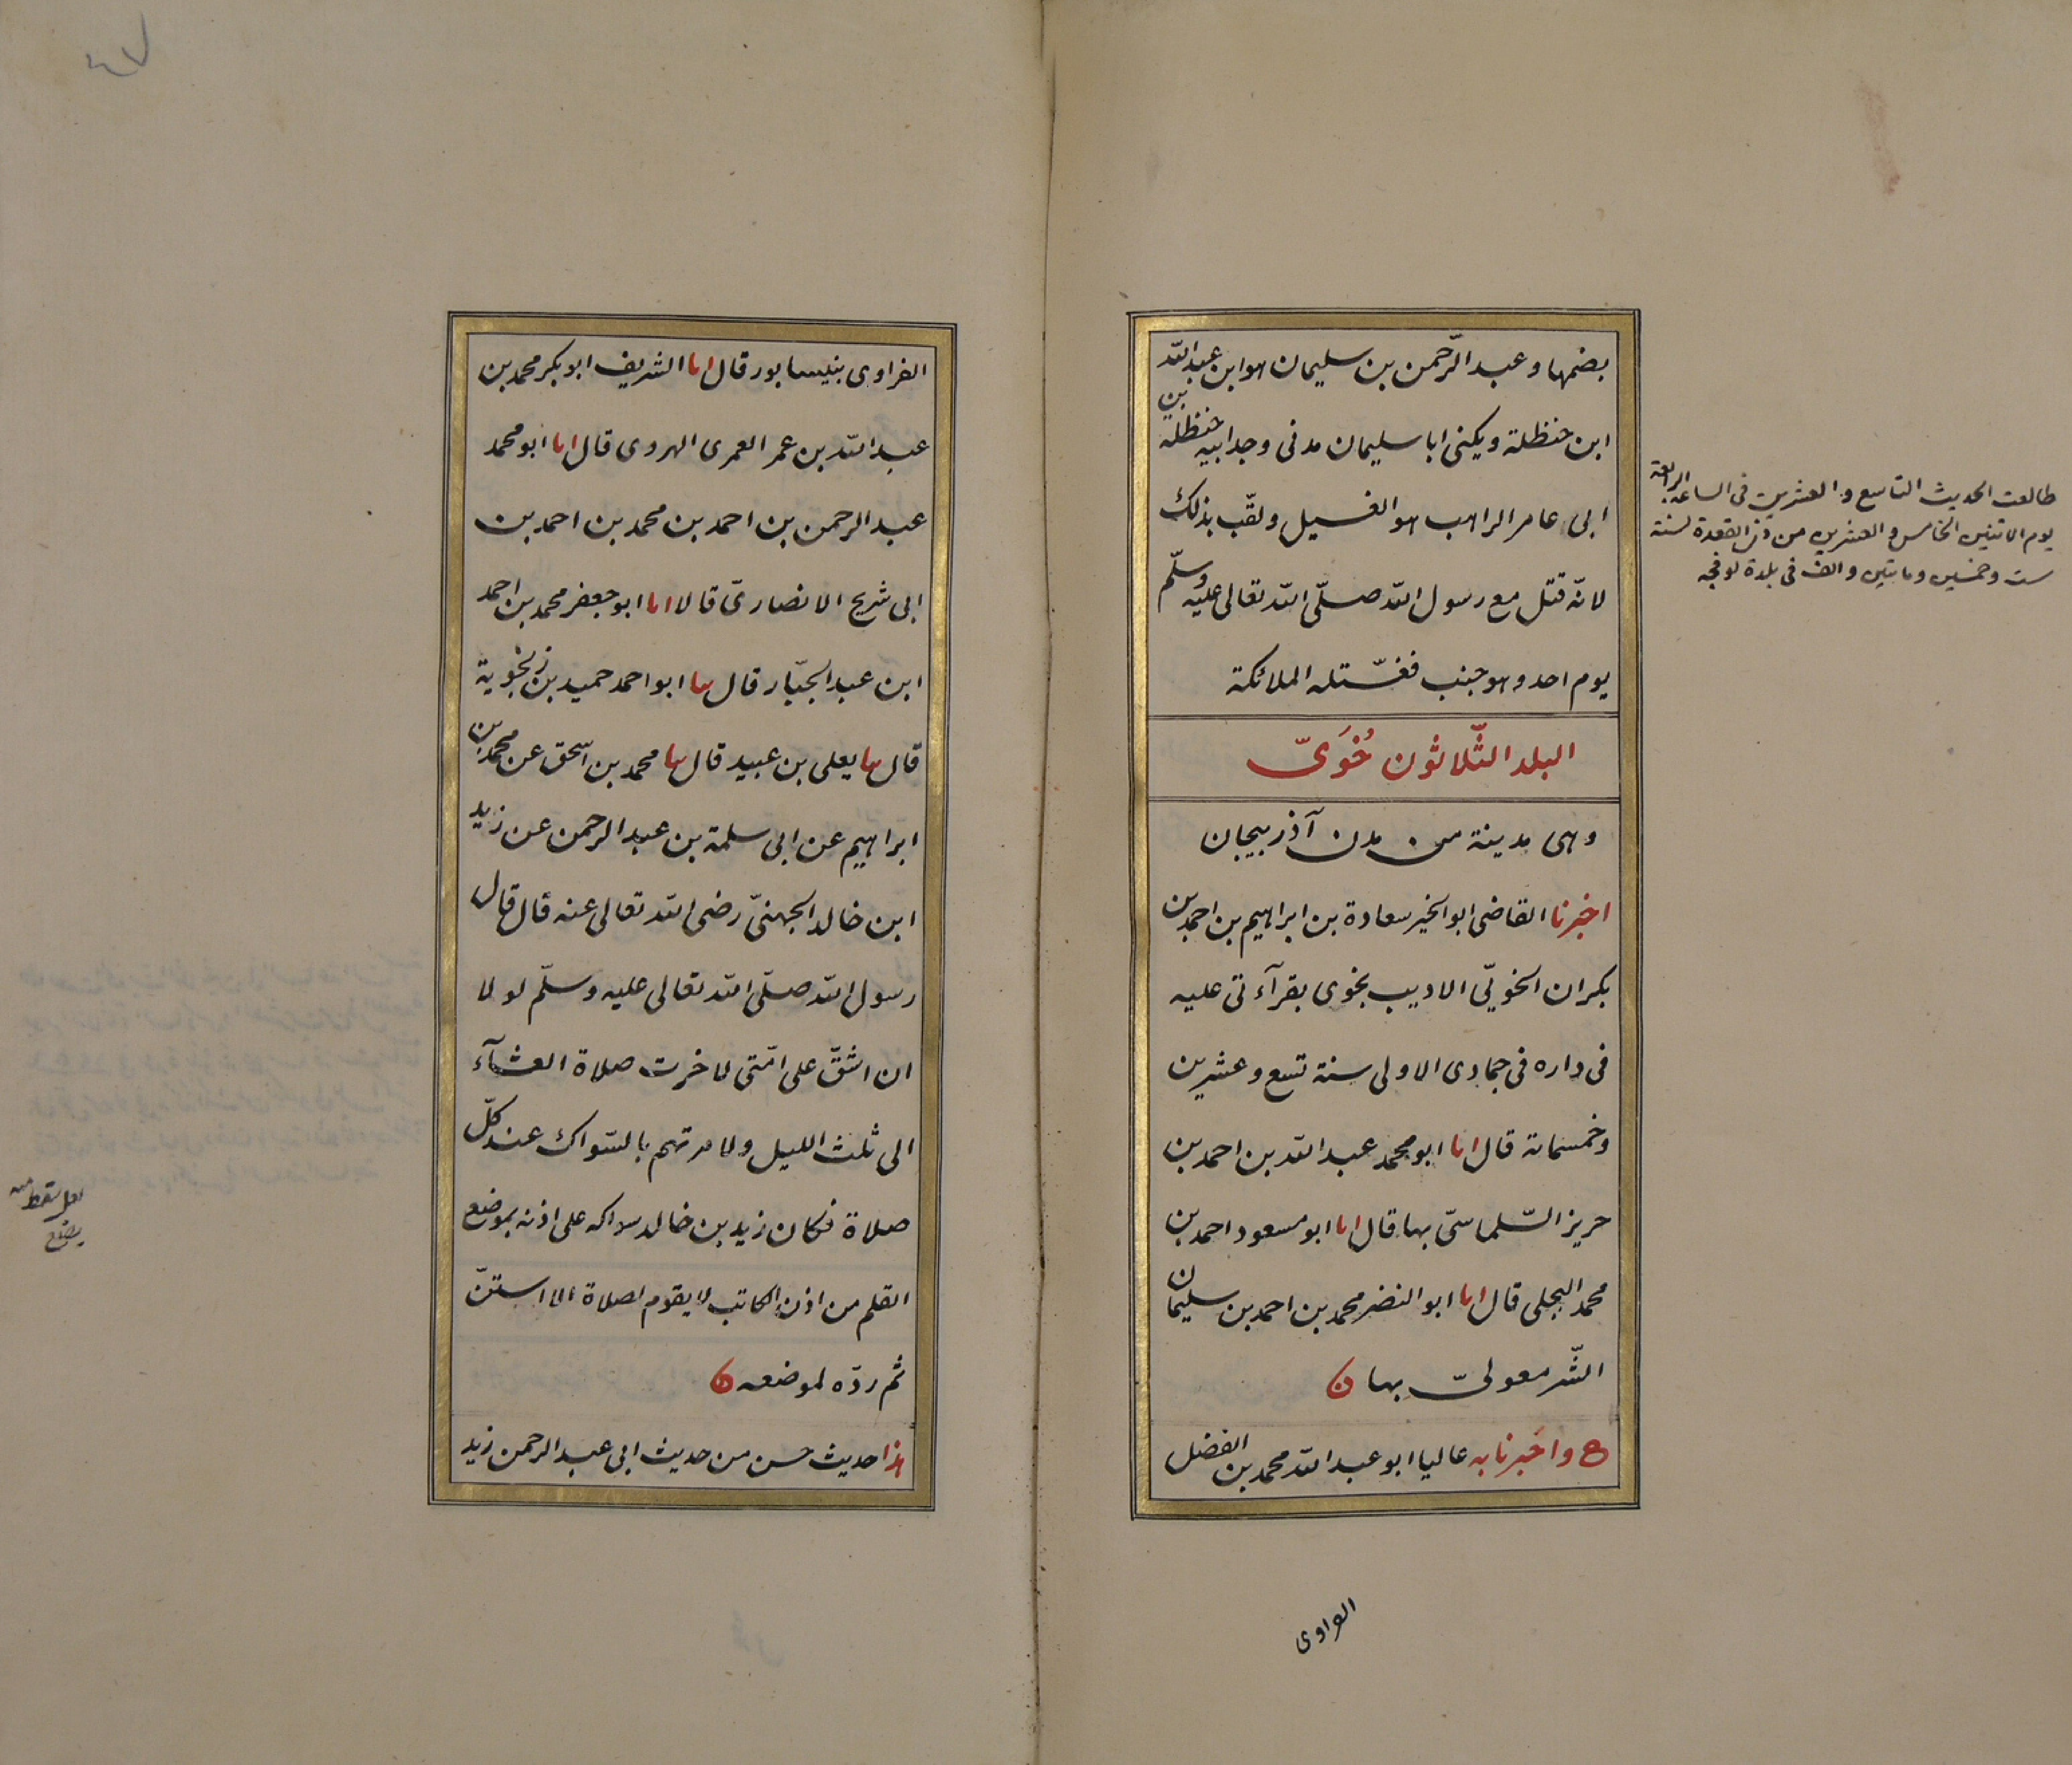 بضمها وعبد الرّحمن بن سليمان هو ابن عبد اللّه بن
ابن حنظلة ويكنى ابا سليمان مدنى وجد ابيه حنظلة
ابى عامر الراهب هو الغسيل ولقّب بذلك
لانّه قتل مع رسول اللّه صلّى اللّه تعالى عليه وسلّم
يوم احد وهو جنب فغسّتله الملائكة
البلد الثّلاثون خُوَىّ
وهى مدينة من مدن آذربيجان
اخبرنا القاضى ابو الخير سعادة بن ابراهيم بن احمد بن
بكران الخويّى الاديب بخوى بقرآءتى عليه
فى داره فى جمادى الاولى سنة تسع وعشرين
وخمسماىة قال انا ابو محمد عبد اللّه بن احمد بن
حريز السّلماسىّ بها قال انا ابو مسعود احمد بن
محمد البجلى قال انا ابو النضر محمد بن احمد بن سليمان
الشّرمعولىّ بها ن
ح واخبرنا به عاليا ابو عبد اللّه محمد بن الفضل
الفراوى
طالعت الحديث التاسع والعشرين فى الساعة الرابعة
يوم الاثنين الخامس والعشرين من ذى القعدة لسنة
ست وخمسين ومايتين والف فى بلدة لوفجه
٤٧
الفراوى بنيسابور قال انا الشريف ابو بكر محمد بن
عبد اللّه بن عمر العمرى الهروى قال انا ابو محمد
عبد الرحمن بن احمد بن محمد بن احمد بن
ابى شريح الانصارىّ قالا انا ابو جعفر محمد بن احمد
ابن عبد الجبّار قال سا ابو احمد حميد بن زنجوية
قال سا يعلى بن عبيد قال سا محمد بن اسحق عن محمد بن
ابراهيم عن ابى سلمة بن عبد الرحمن عن زيد
ابن خالد الجهنىّ رضى اللّه تعالى عنه قال قال
رسول اللّه صلّى اللّه تعالى عليه وسلّم لولا
ان اشقّ على امّتى لاخرت صلاة العشآء
الى ثلث الليل ولامرتهم بالسّواك عند كلّ
صلاة فكان زيد بن خالد سواكه على اذنه بموضع
القلم من اذن الكاتب لا يقوم لصلاة الا استنّ
ثم ردّه لموضعه ن
هذا حديث حسن من حديث ابى عبد الرحمن زيد
لعل سقط منه
يضع